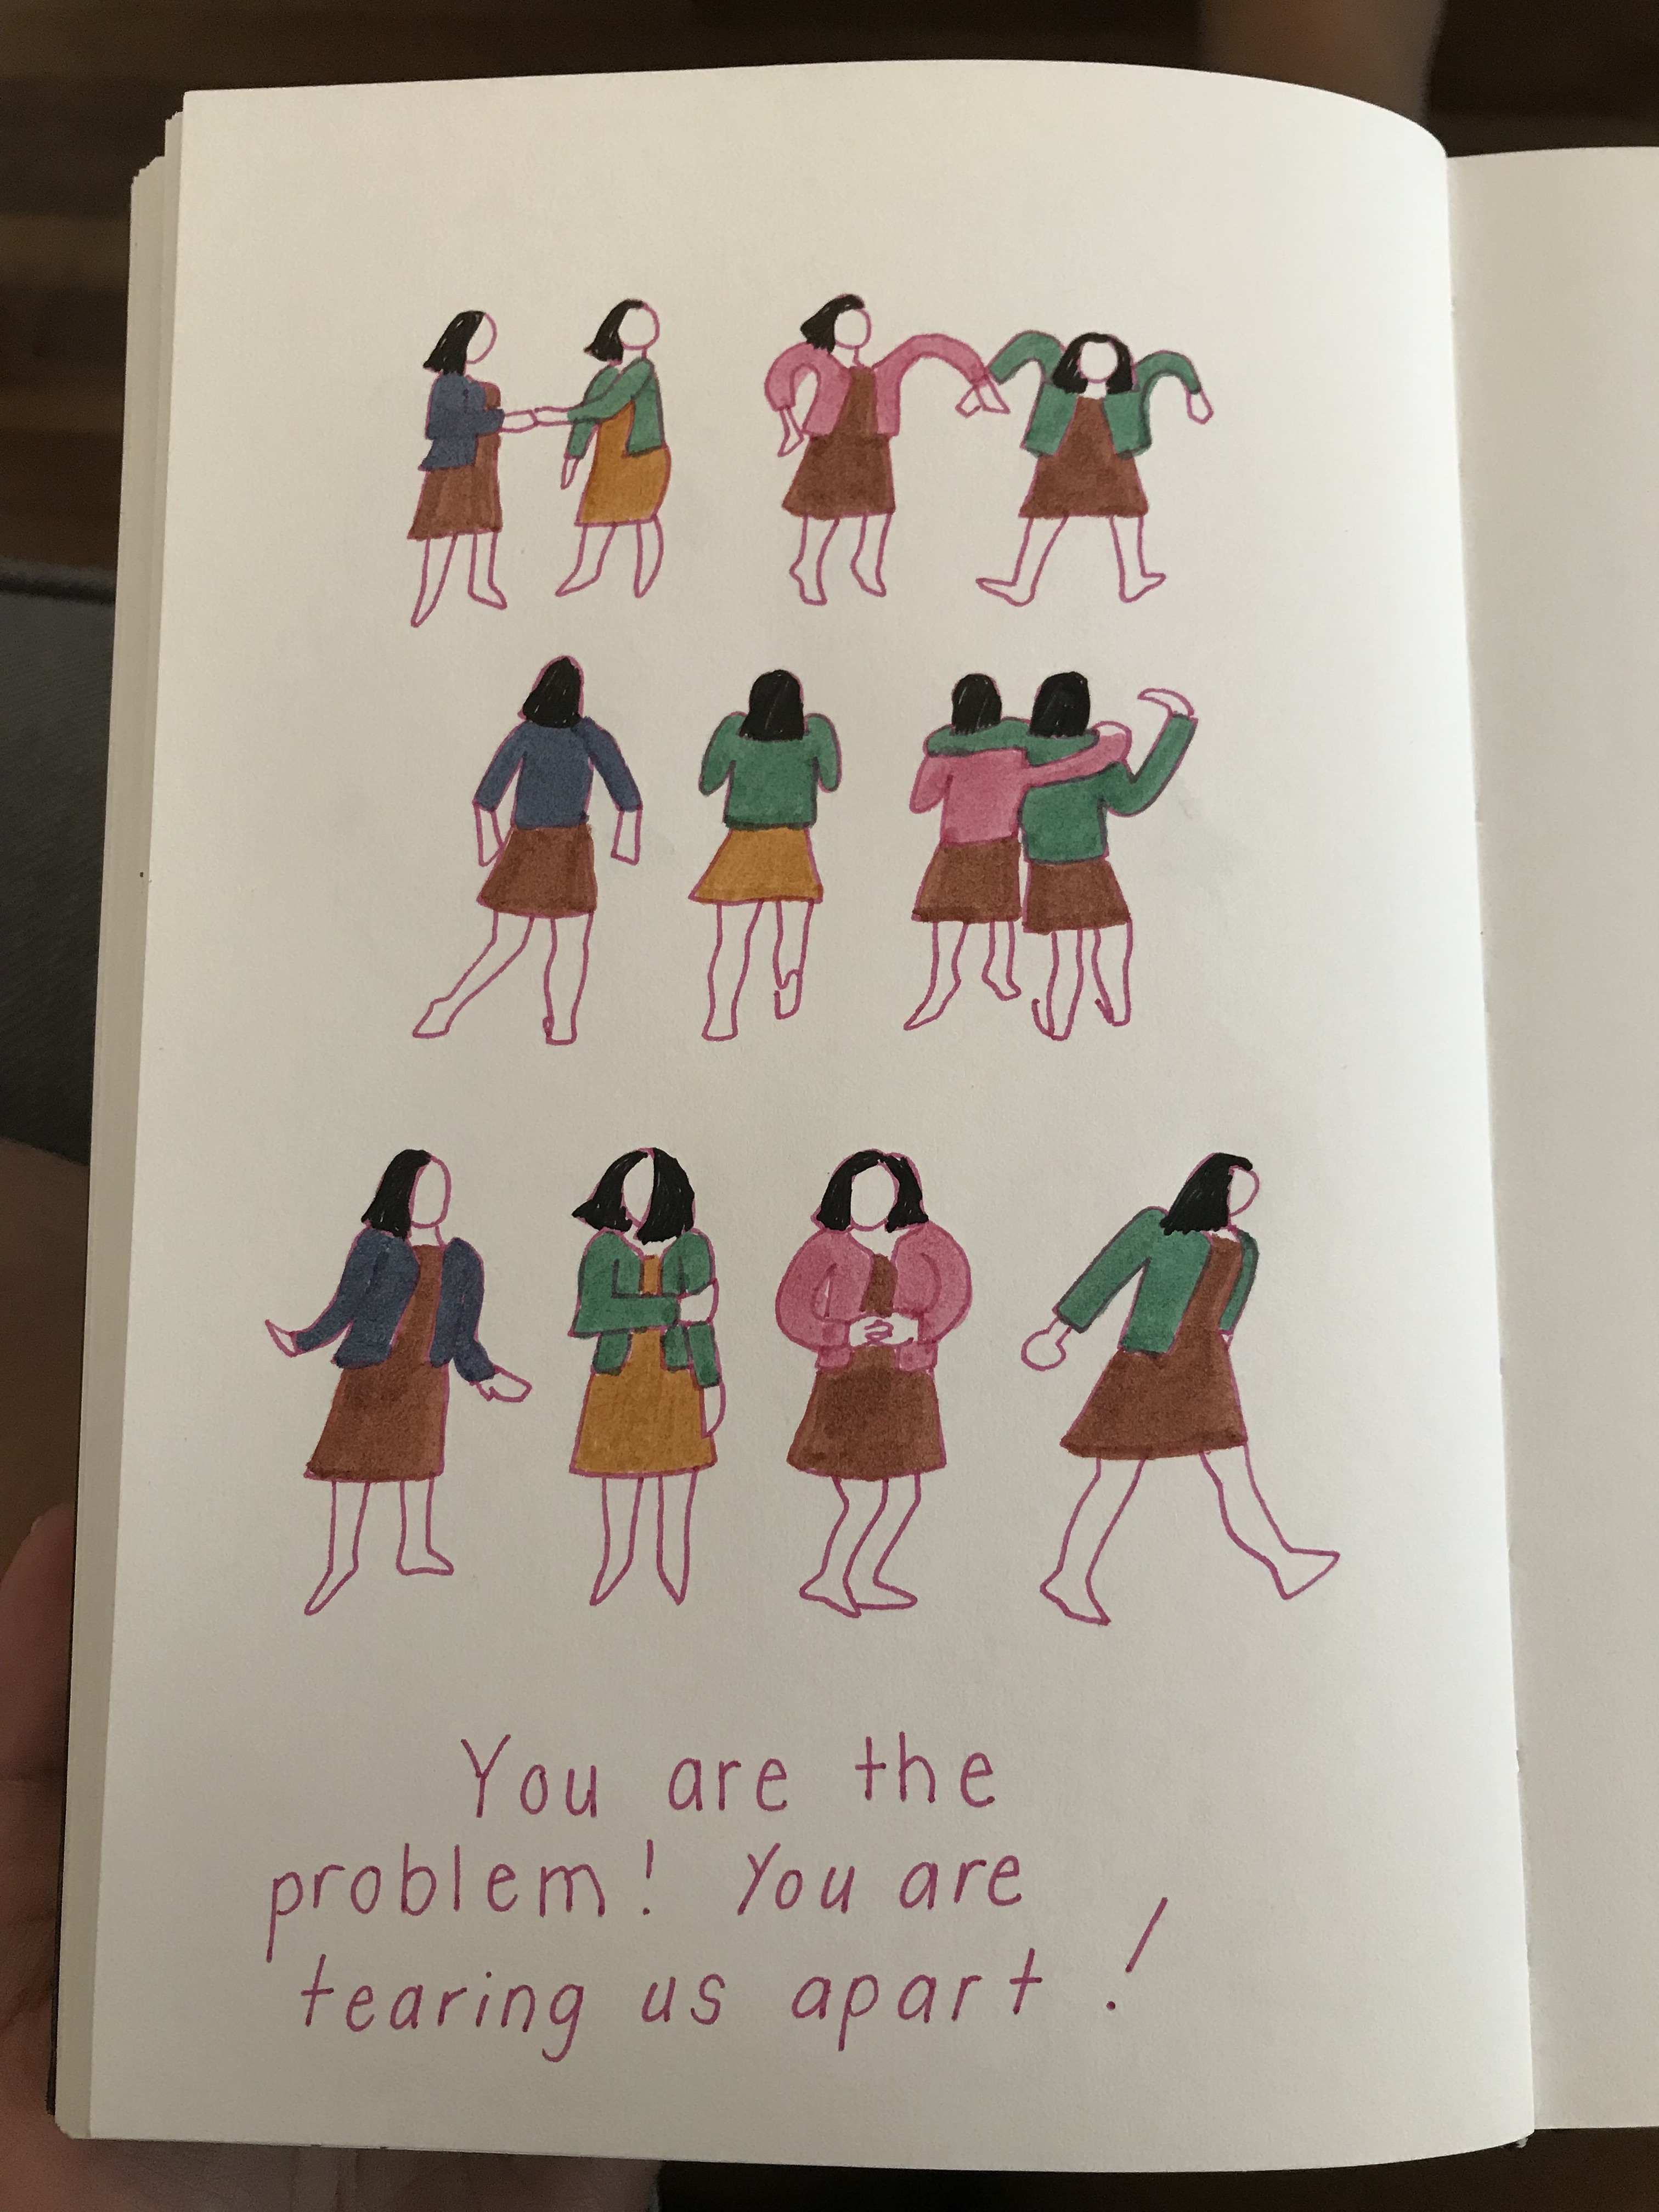 You are the
problem! You are
tearing us apart!